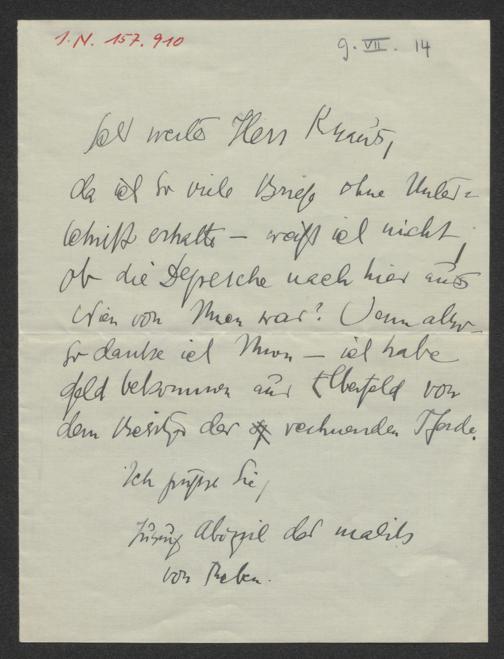 I.N. 157.910
9. VII. 14
werter Herr Kraus,
da ich so viele Briefe ohne Unter=
schrift erhalte – weiß ich nicht,
ob die Depesche nach hier aus
Wien von Ihnen war? Wenn also –
so danke ich Ihnen – ich habe
Geld bekommen aus Elberfeld von
dem Besitzer der rechnenden Pferde.
Ich grüße Sie,
Jussuf Abigail der malik
von Theben.